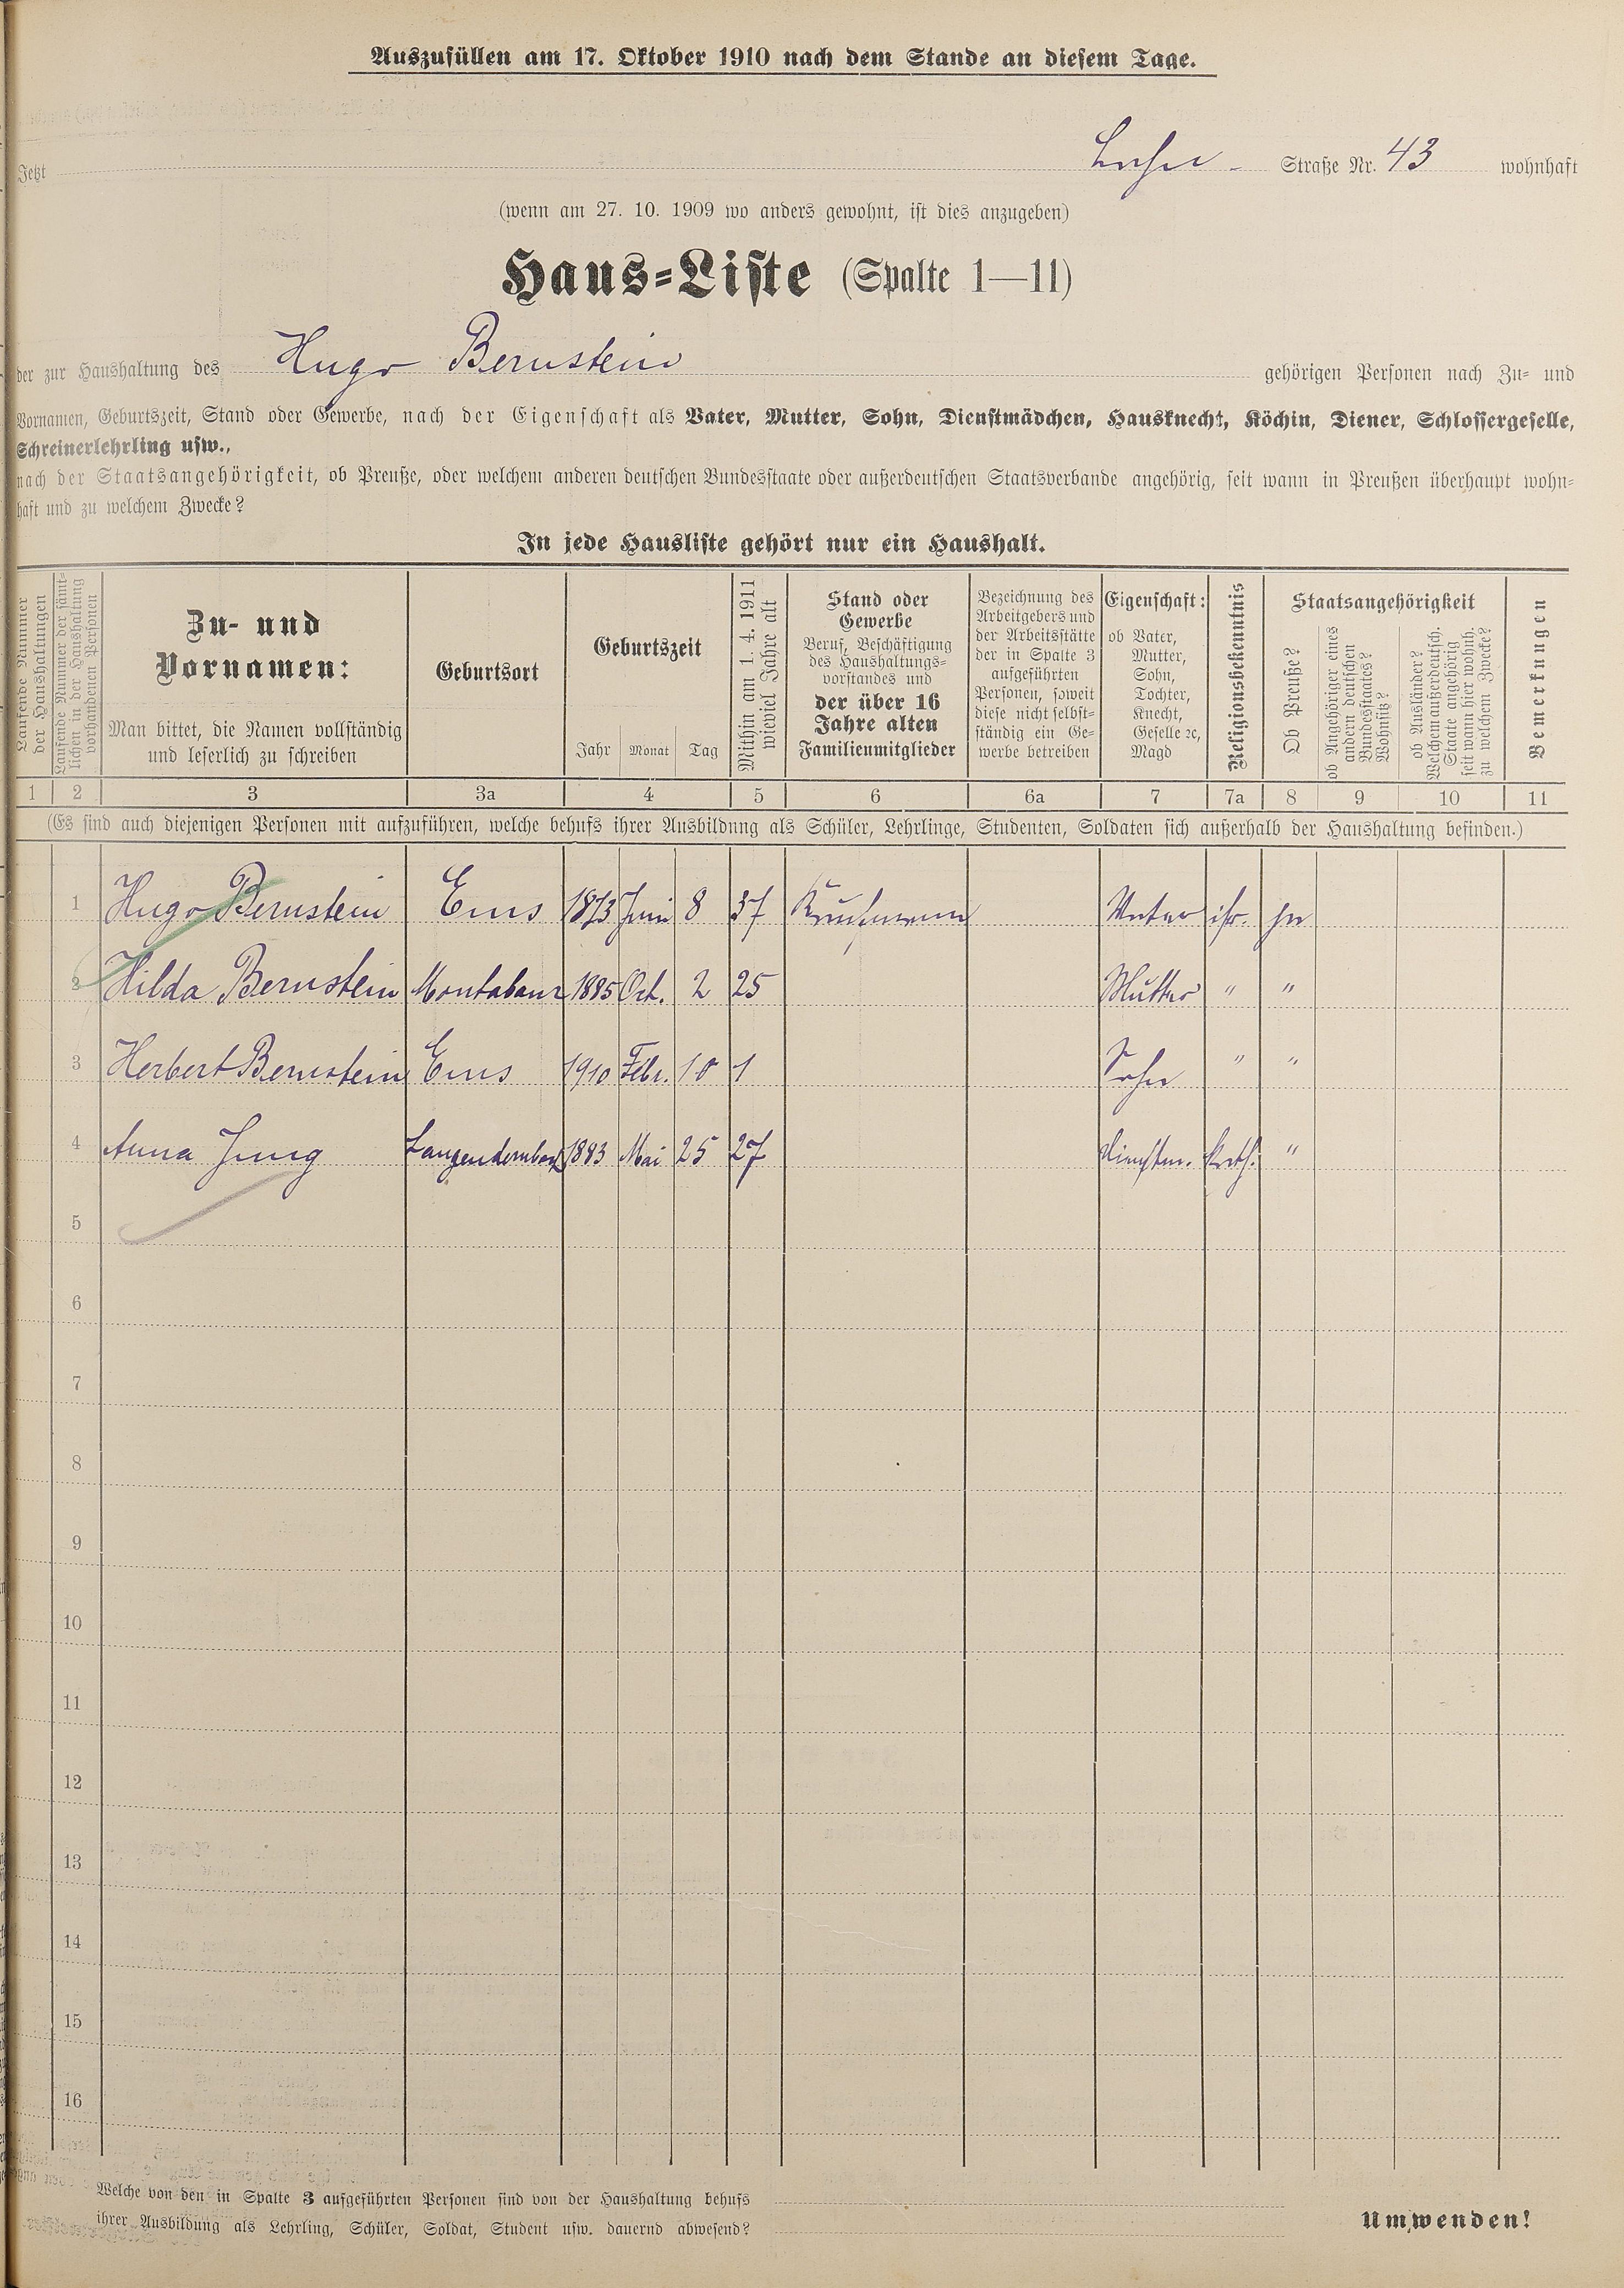 Auszufüllen am 17. Oktober 1910 nach dem Stande an diesem Tage.
Jetzt Straße Nr. 43 wohnhaft
(wenn am 27. 10. 1909 wo anders gewohnt, ist dies anzugeben)
Haus-Liste (Spalte 1—11)
der zur Haushaltung des Hugo Bernstein gehörigen Personen nach Zu- und
Vornamen, Geburtszeit, Stand oder Gewerbe, nach der Eigenschaft als Vater, Mutter, Sohn, Dienstmädchen, Hausknecht, Köchin, Diener, Schlossergeselle,
Schreinerlehrling usw.,
nach der Staatsangehörigkeit, ob Preuße, oder welchem anderen deutschen Bundesstaate oder außerdeutschen Staatsverbande angehörig, seit wann in Preußen überhaupt wohn-
haft und zu welchem Zwecke?
In jede Hausliste gehört nur ein Haushalt.
Laufende Nummer
der Haushaltungen
Laufende Nummer der sämt-
lichen in der Haushaltung
vorhandenen Personen
Zu- und
Vornamen:
Man bittet, die Namen vollständig
und leserlich zu schreiben
Geburtsort
Geburtszeit
Jahr Monat Tag
Mithin am 1. 4. 1911
wieviel Jahre alt
Stand oder
Gewerbe
Beruf, Beschäftigung
des Haushaltungs-
vorstandes und
der über 16
Jahre alten
Familienmitglieder
Bezeichnung des
Arbeitgebers und
der Arbeitsstätte
der in Spalte 3
aufgeführten
Personen, soweit
diese nicht selbst-
ständig ein Ge-
werbe betreiben
Eigenschaft:
ob Vater,
Mutter,
Sohn,
Tochter,
Knecht,
Geselle ꝛc,
Magd
Religionsbekenntnis
Staatsangehörigkeit
Ob Preuße?
ob Angehöriger eines
andern deutschen
Bundesstaates?
Wohnsitz?
ob Ausländer?
Welchem außerdeutsch.
Staate angehörig
seit wann hier wohnh.
zu welchem Zwecke?
Bemerkungen
1 2 3 3a 4 5 6 6a 7 7a 8 9 10 11
(Es sind auch diejenigen Personen mit aufzuführen, welche behufs ihrer Ausbildung als Schüler, Lehrlinge, Studenten, Soldaten sich außerhalb der Haushaltung befinden.)
1 Hugo Bernstein Ems 1873 Juni 8 37 Kaufmann Vater isr. ja
2 Hilda Bernstein Montabaur 1885 Oct. 2 25 Mutter " "
3 Herbert Bernstein Ems 1910 Febr. 10 1 Sohn " "
4 Anna Jung Langendernbach 1883 Mai 25 27 Dienstm. kath. "
5
6
7
8
9
10
11
12
13
14
15
16
Welche von den in Spalte 3 aufgeführten Personen sind von der Haushaltung behufs
ihrer Ausbildung als Lehrling, Schüler, Soldat, Student usw. dauernd abwesend?
Umwenden!